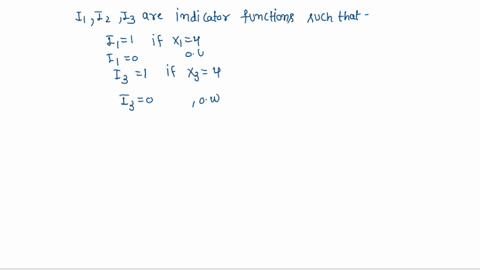 I₁, I₂, I₃ are indicator functions such that -
I₁=1 if x₁=4
I₁=0 0.W
I₃=1 if x₃=4
I₃=0 , 0.W